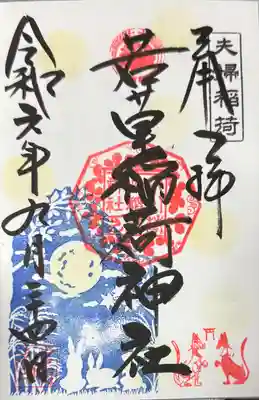 夫婦稲荷
奉拝
若宮稲荷神社
令和六年九月二十四日